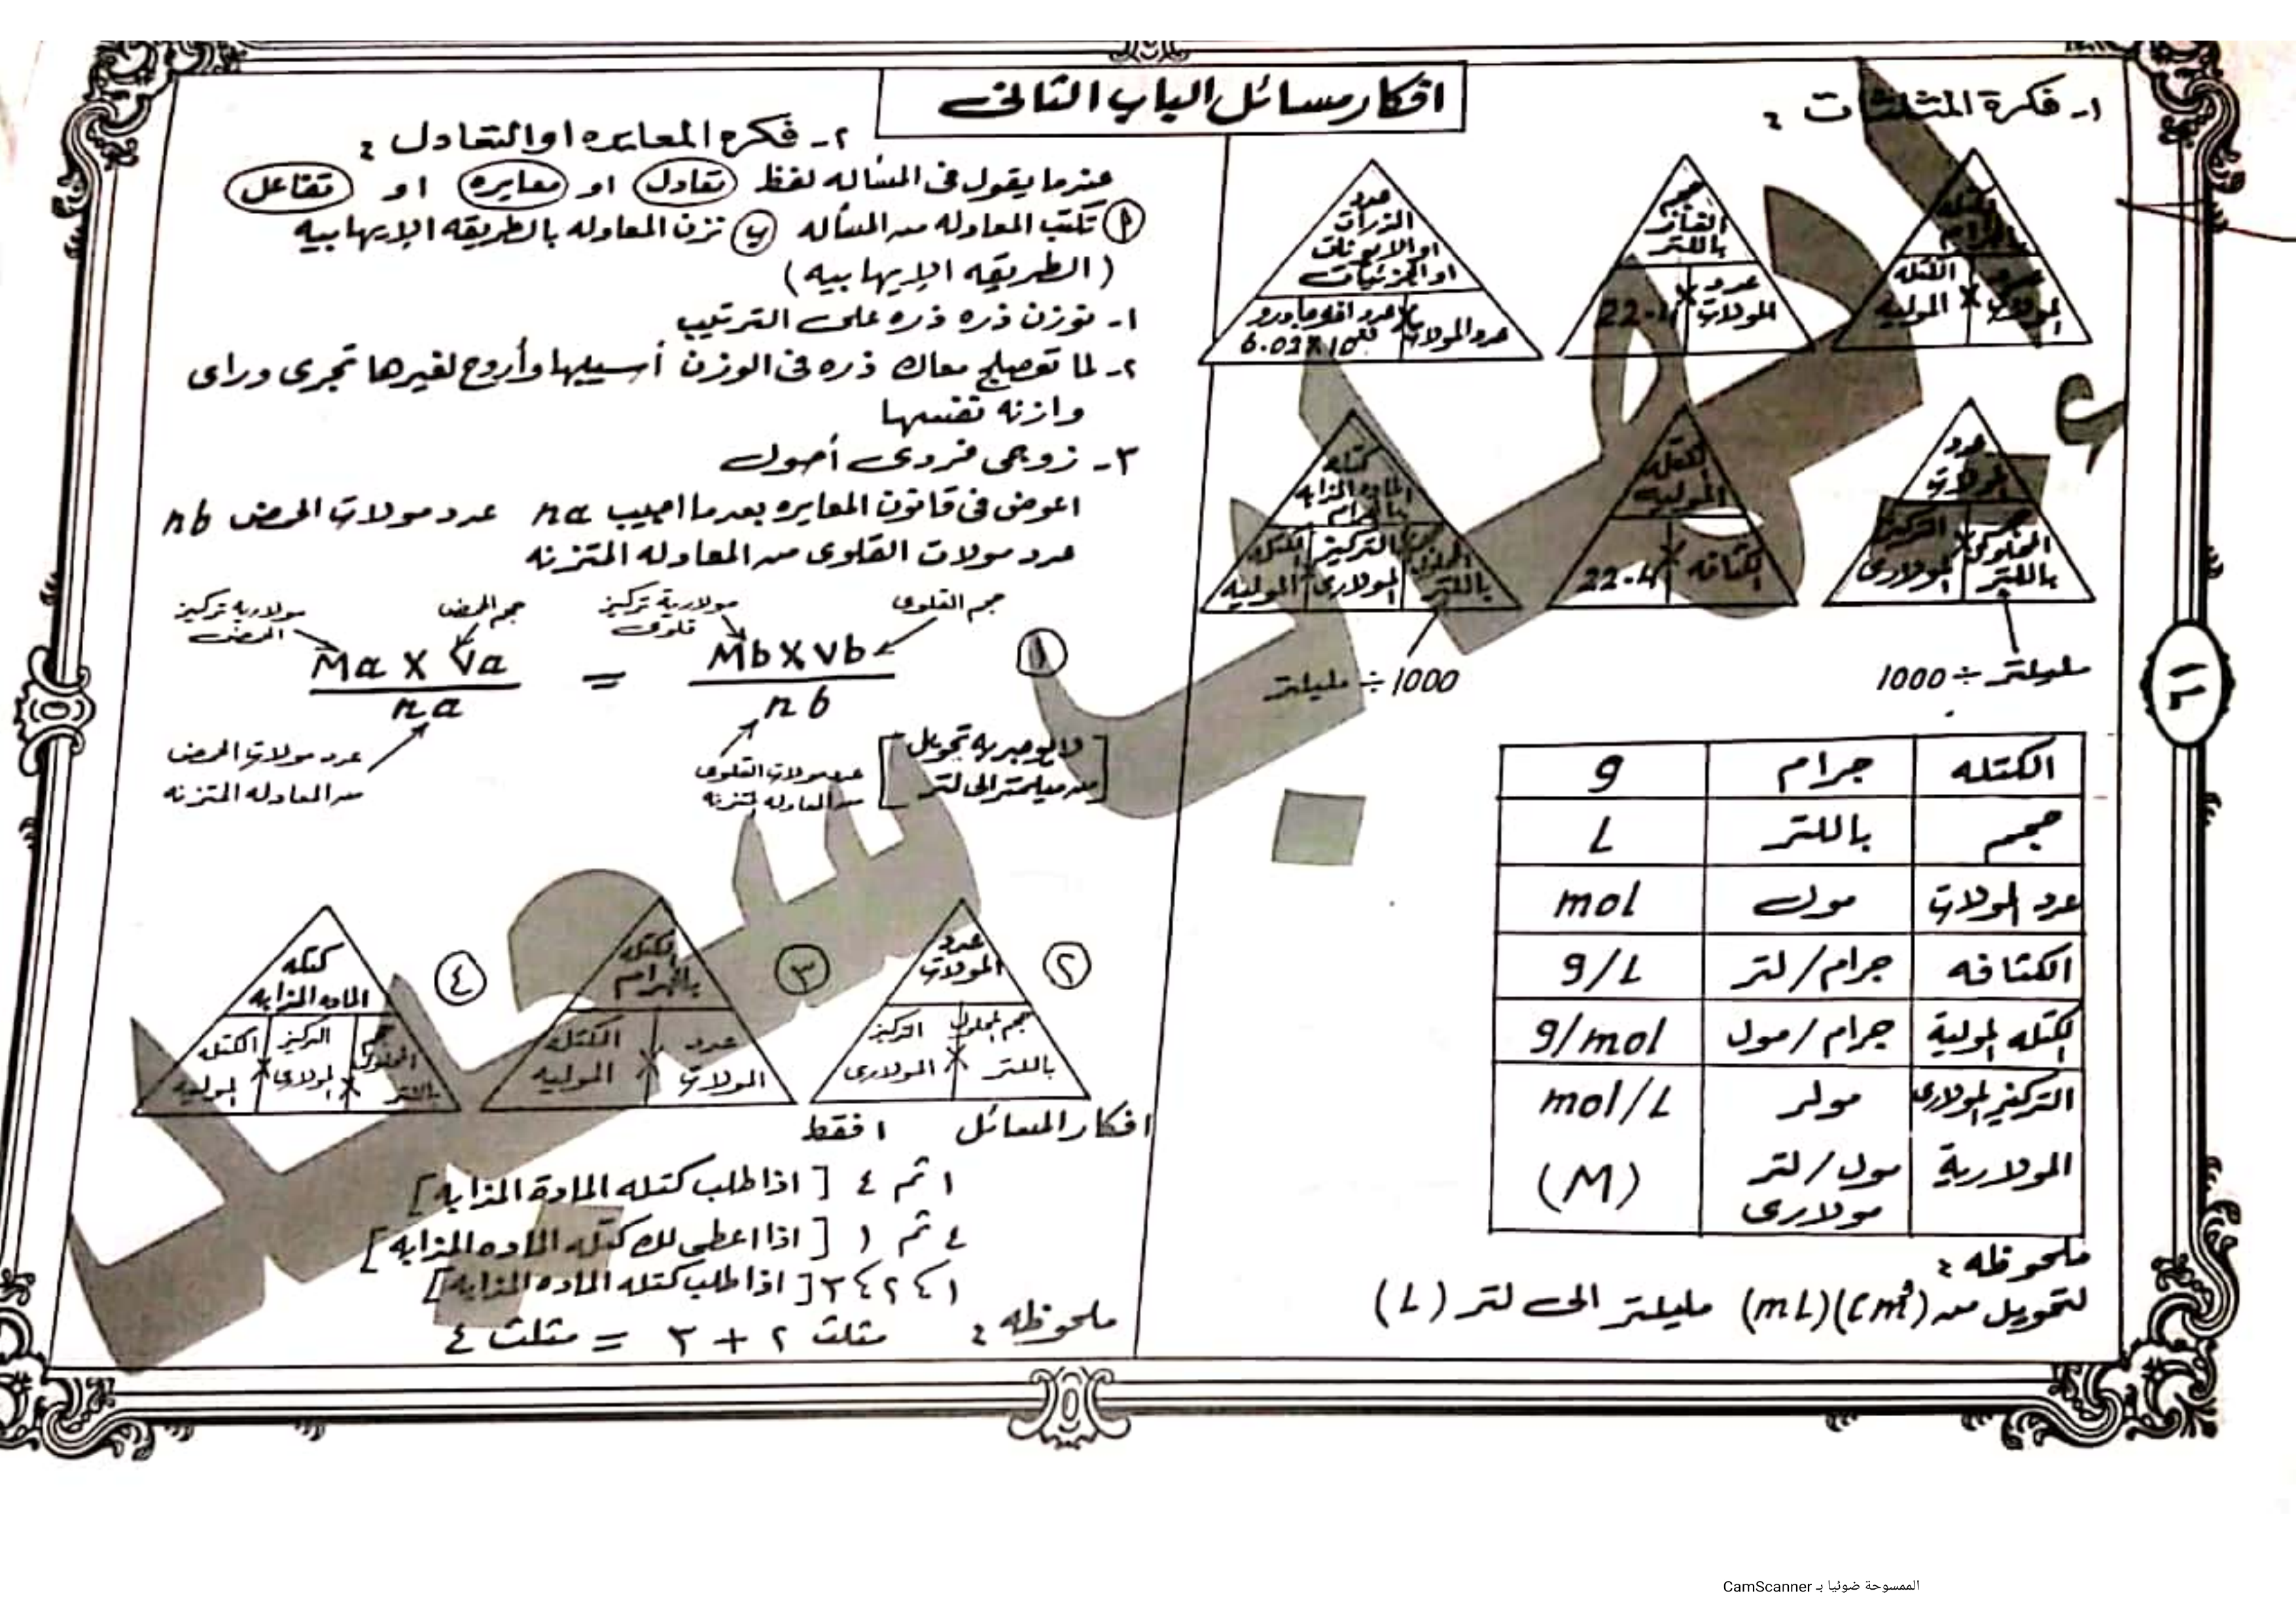 افكار مسائل الباب الثانى
١- فكرة المثلثات :
الكتله بالجرام
عدد المولات × الكتله الموليه
حجم الغاز باللتر
عدد المولات × 22.4
عدد الذرات او الايونات او الجزئيات
عدد المولات × عدد افوجادرو
عدد المولات
حجم المحلول باللتر × التركيز المولارى
مليلتر ÷ 1000
الكتله الموليه
الكثافه × 22.4
كتله الماده المذابه بالجرام
حجم المحلول باللتر × التركيز المولارى × الكتله الموليه
1000 ÷ مليلتر
الكتله جرام g
حجم باللتر L
عدد المولات مول mol
الكثافه جرام/لتر g/L
الكتله المولية جرام/مول g/mol
التركيز المولارى مولر mol/L
المولارية مول/لتر مولارى (M)
ملحوظه :
لتحويل من (cm³)(mL) مليلتر الى لتر (L)
١٢
٢- فكره المعايره او التعادل :
عندما يقول فى المسأله لفظ تعادل او معايره او تفاعل
أ تكتب المعادله من المسأله ب تزن المعادله بالطريقه الإيهابيه
(الطريقه الإيهابيه)
١- توزن ذره ذره على الترتيب
٢- لما تعصلج معاك ذره فى الوزن أسيبها وأروح لغيرها تجرى وراى
وازنه نفسها
٣- زوجى فردى أصول
اعوض فى قانون المعايره بعدما اجيب na عدد مولات الحمض nb
عدد مولات القلوى من المعادله المتزنه
مولارية تركيز الحمض
حجم الحمض
مولارية تركيز قلوى
حجم القلوى
١ Ma X Va / na = Mb X Vb / nb
عدد مولات الحمض
من المعادله المتزنه
عدد مولات القلوى
من المعادله المتزنه
[لا يوجد به تحويل
من ميلمتر الى لتر]
٢ عدد المولات
حجم المحلول باللتر × التركيز المولارى
٣ الكتله بالجرام
عدد المولات × الكتله الموليه
٤ كتله الماده المذابه
حجم المحلول باللتر × التركيز المولارى × الكتله الموليه
افكار المسائل ١ فقط
١ ثم ٤ [اذا طلب كتله المادة المذابه]
٤ ثم ١ [اذا اعطى لك كتله الماده المذابه]
١ ، ٢ ، ٣ [اذا طلب كتله الماده المذابه]
ملحوظه : مثلث ٢ + ٣ = مثلث ٤
الممسوحة ضوئيا بـ CamScanner